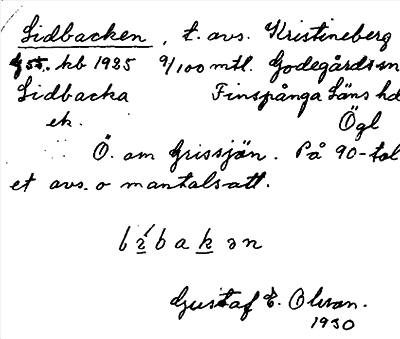 Lidbacken, t. avs. Kristineberg
kb 1925 9/100 mtl. Godegårds sn
Lidbacka Finspånga Läns hd
ek. Ögl
Ö. om Grissjön. På 90-tal
et avs. o mantalsatt.
b i b a k ə n
Gustaf E. Olsson.
1930